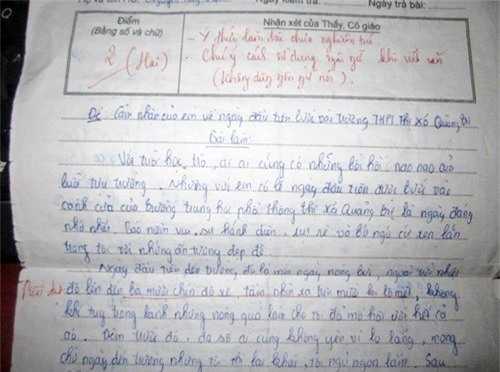 Ngày trả bài:
Điểm
(Bằng số và chữ)
Nhận xét của Thầy, Cô giáo
2 (Hai)
- Ý thức làm bài chưa nghiêm túc
- Chú ý cách sử dụng ngôn ngữ khi viết văn
(không dùng ngôn ngữ nói).
Đề: Cảm nhận của em về ngày đầu tiên bước vào trường THPT Thị Xã Quảng Trị
Bài làm:
Với tuổi học trò, ai ai cũng có những bồi hồi nao nao của
buổi tựu trường. Nhưng với em có lẽ ngày đầu tiên được bước vào
cánh cửa của trường trung học phổ thông thị xã Quảng Trị là ngày đáng
nhớ nhất. Bao niềm vui, sự hãnh diện, sự và bỡ ngỡ cứ xen lẫn
trong tôi với những ấn tượng đẹp đẽ.
Ngày đầu tiên đến trường, đó là một ngày nóng bức, người ta
đo lên đến ba mươi chín độ xê, tầm nhìn xa trên mười ki lô mét, không
khí tuy trong lành nhưng nóng quá làm cho tôi đổ mồ hôi ướt hết cả
áo. Đêm trước đó, đa số ai cũng không yên vì lo lắng, mong
chờ ngày đến trường nhưng tôi thì lại khác, tôi ngủ ngon lắm. Sau